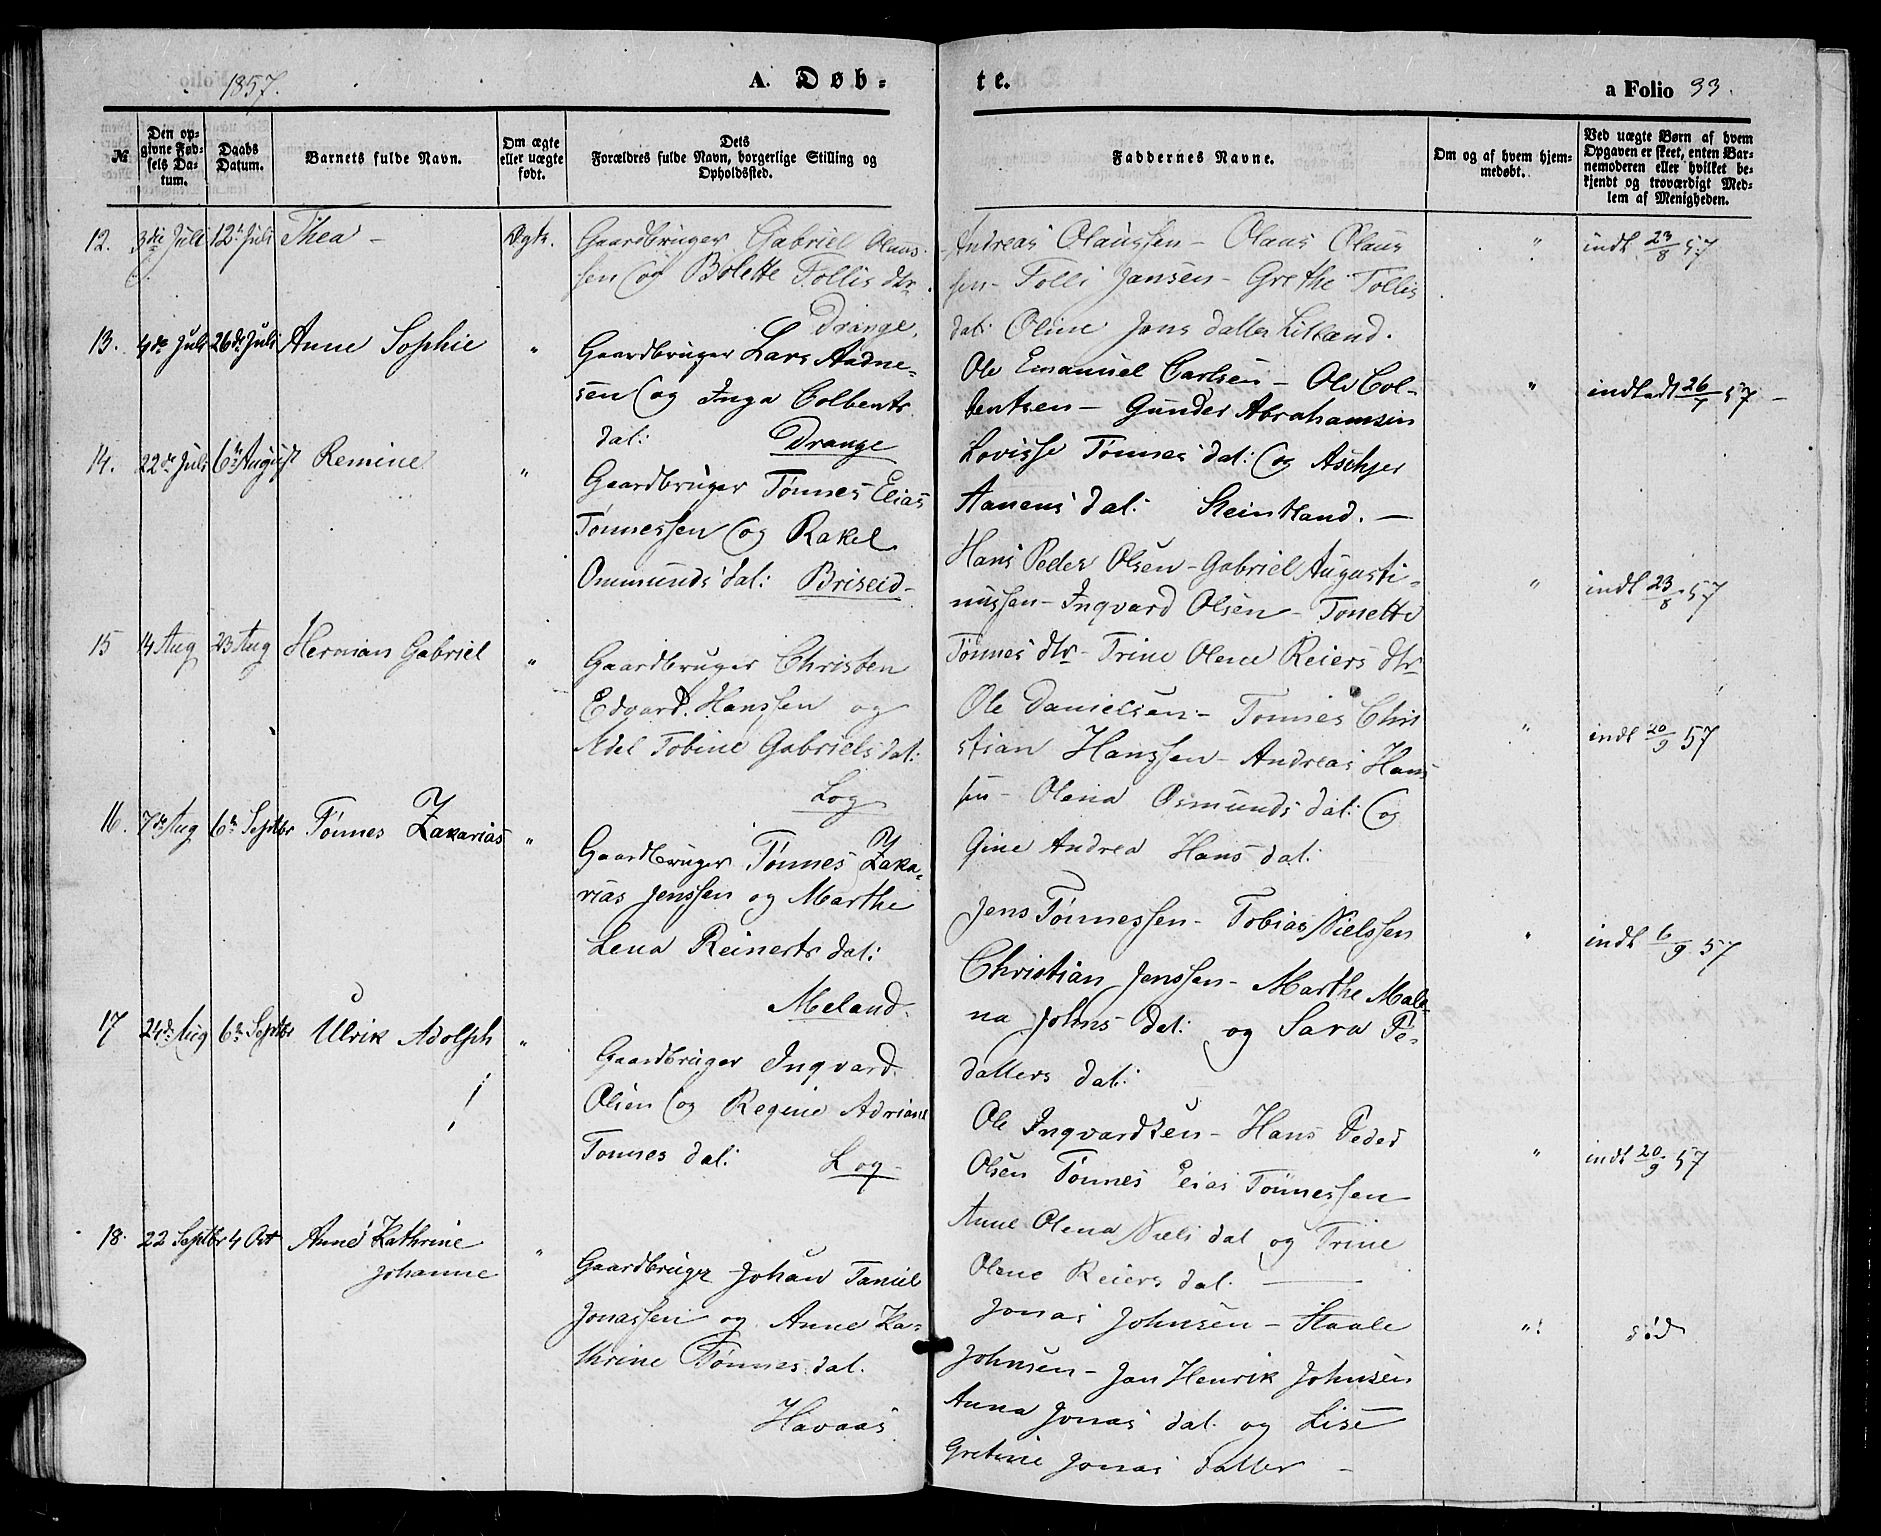 1857.
A. Døb-
te.
a Folio 33.
№
Den op-
givne Fød-
sels Da-
tum.
Daabs
Datum.
Barnets fulde Navn.
Om ægte
eller uægte
født.
Dets
Forældres fulde Navn, borgerlige Stilling og
Opholdssted.
Faddernes Navne.
Om og af hvem hjem-
medøbt.
Ved uægte Børn af hvem
Opgaven er skeet, enten Bar-
nemoderen eller hvilket be-
kjendt og troværdigt Med-
lem af Menigheden.
12. 3die Juli 12te Juli Thea - Ægte.
Gaardbruger Gabriel Olaus-
sen og Bolette Tollis dtr.
Drange.
Andreas Olaussen - Olaus Olaus
sen - Tolli Jansen - Grethe Tollis
dat: Oline Jons datter Litland.
" indt 23/8 57
13. 4de Juli 26de Juli Anne Sophie "
Gaardbruger Lars Aadne-
sen og Inga Colbents
dat: Drange
Ole Emanuel Carlsen - Ole Col-
bentsen - Gunder Abrahamsen
Lovisse Tønnes dat: og Aschjer
Aanens dat: Steinsland. -
" indtadt 26/7 57 -
14. 22de Juli 6te August Remine "
Gaardbruger Tønnes Elias
Tønnessen og Rakel
Ommunds dat: Briseid -
Hans Peder Olsen - Gabriel Augusti-
nussen - Ingvard Olsen - Tonette
Tønnes dtr - Trine Olene Reiers dtr
" indt 23/8 57
15 14 Aug 23 Aug Herman Gabriel "
Gaardbruger Christen
Edvard Hanssen og
Adel Tobine Gabriels dat:
Log
Ole Danielsen - Tønnes Chri
stian Hanssen - Andreas Hans
sen - Olena Osmunds dat: og
Gine Andrea Hans dat:
" indt 20/9 57
16. 7de Aug 6te Septbr Tønnes Zakarias "
Gaardbruger Tønnes Zaka-
rias Jenssen og Marthe
Lena Reinerts dat:
Meland.
Jens Tønnessen - Tobias Nielssen
Christian Jenssen - Marthe Male
na Johns dat: og Sara Pe-
datters dat:
" indt 6/9 57
17 24de Aug 6te Septbr Ulrik Adolph "
Gaardbruger Ingvard
Olsen og Regine Adriane
Tønnes dat: Log -
Ole Ingvardsen - Hans Peder
Olsen Tønnes Elias Tønnessen
Anne Olena Niels dat og Trine
Olene Reiers dat.
" indt 20/9 57
18. 22 Septbr 4 Oct Anne Kathrine
Johanne "
Gaardbruger Johan Taniel
Jonassen og Anne Ka-
thrine Tønnes dat.
Havaas
Jonas Johnsen - Staale
Johnsen - Jan Henrik Johnsen
Anna Jonas dat. og Lise
Gretine Jonas datter -
" død